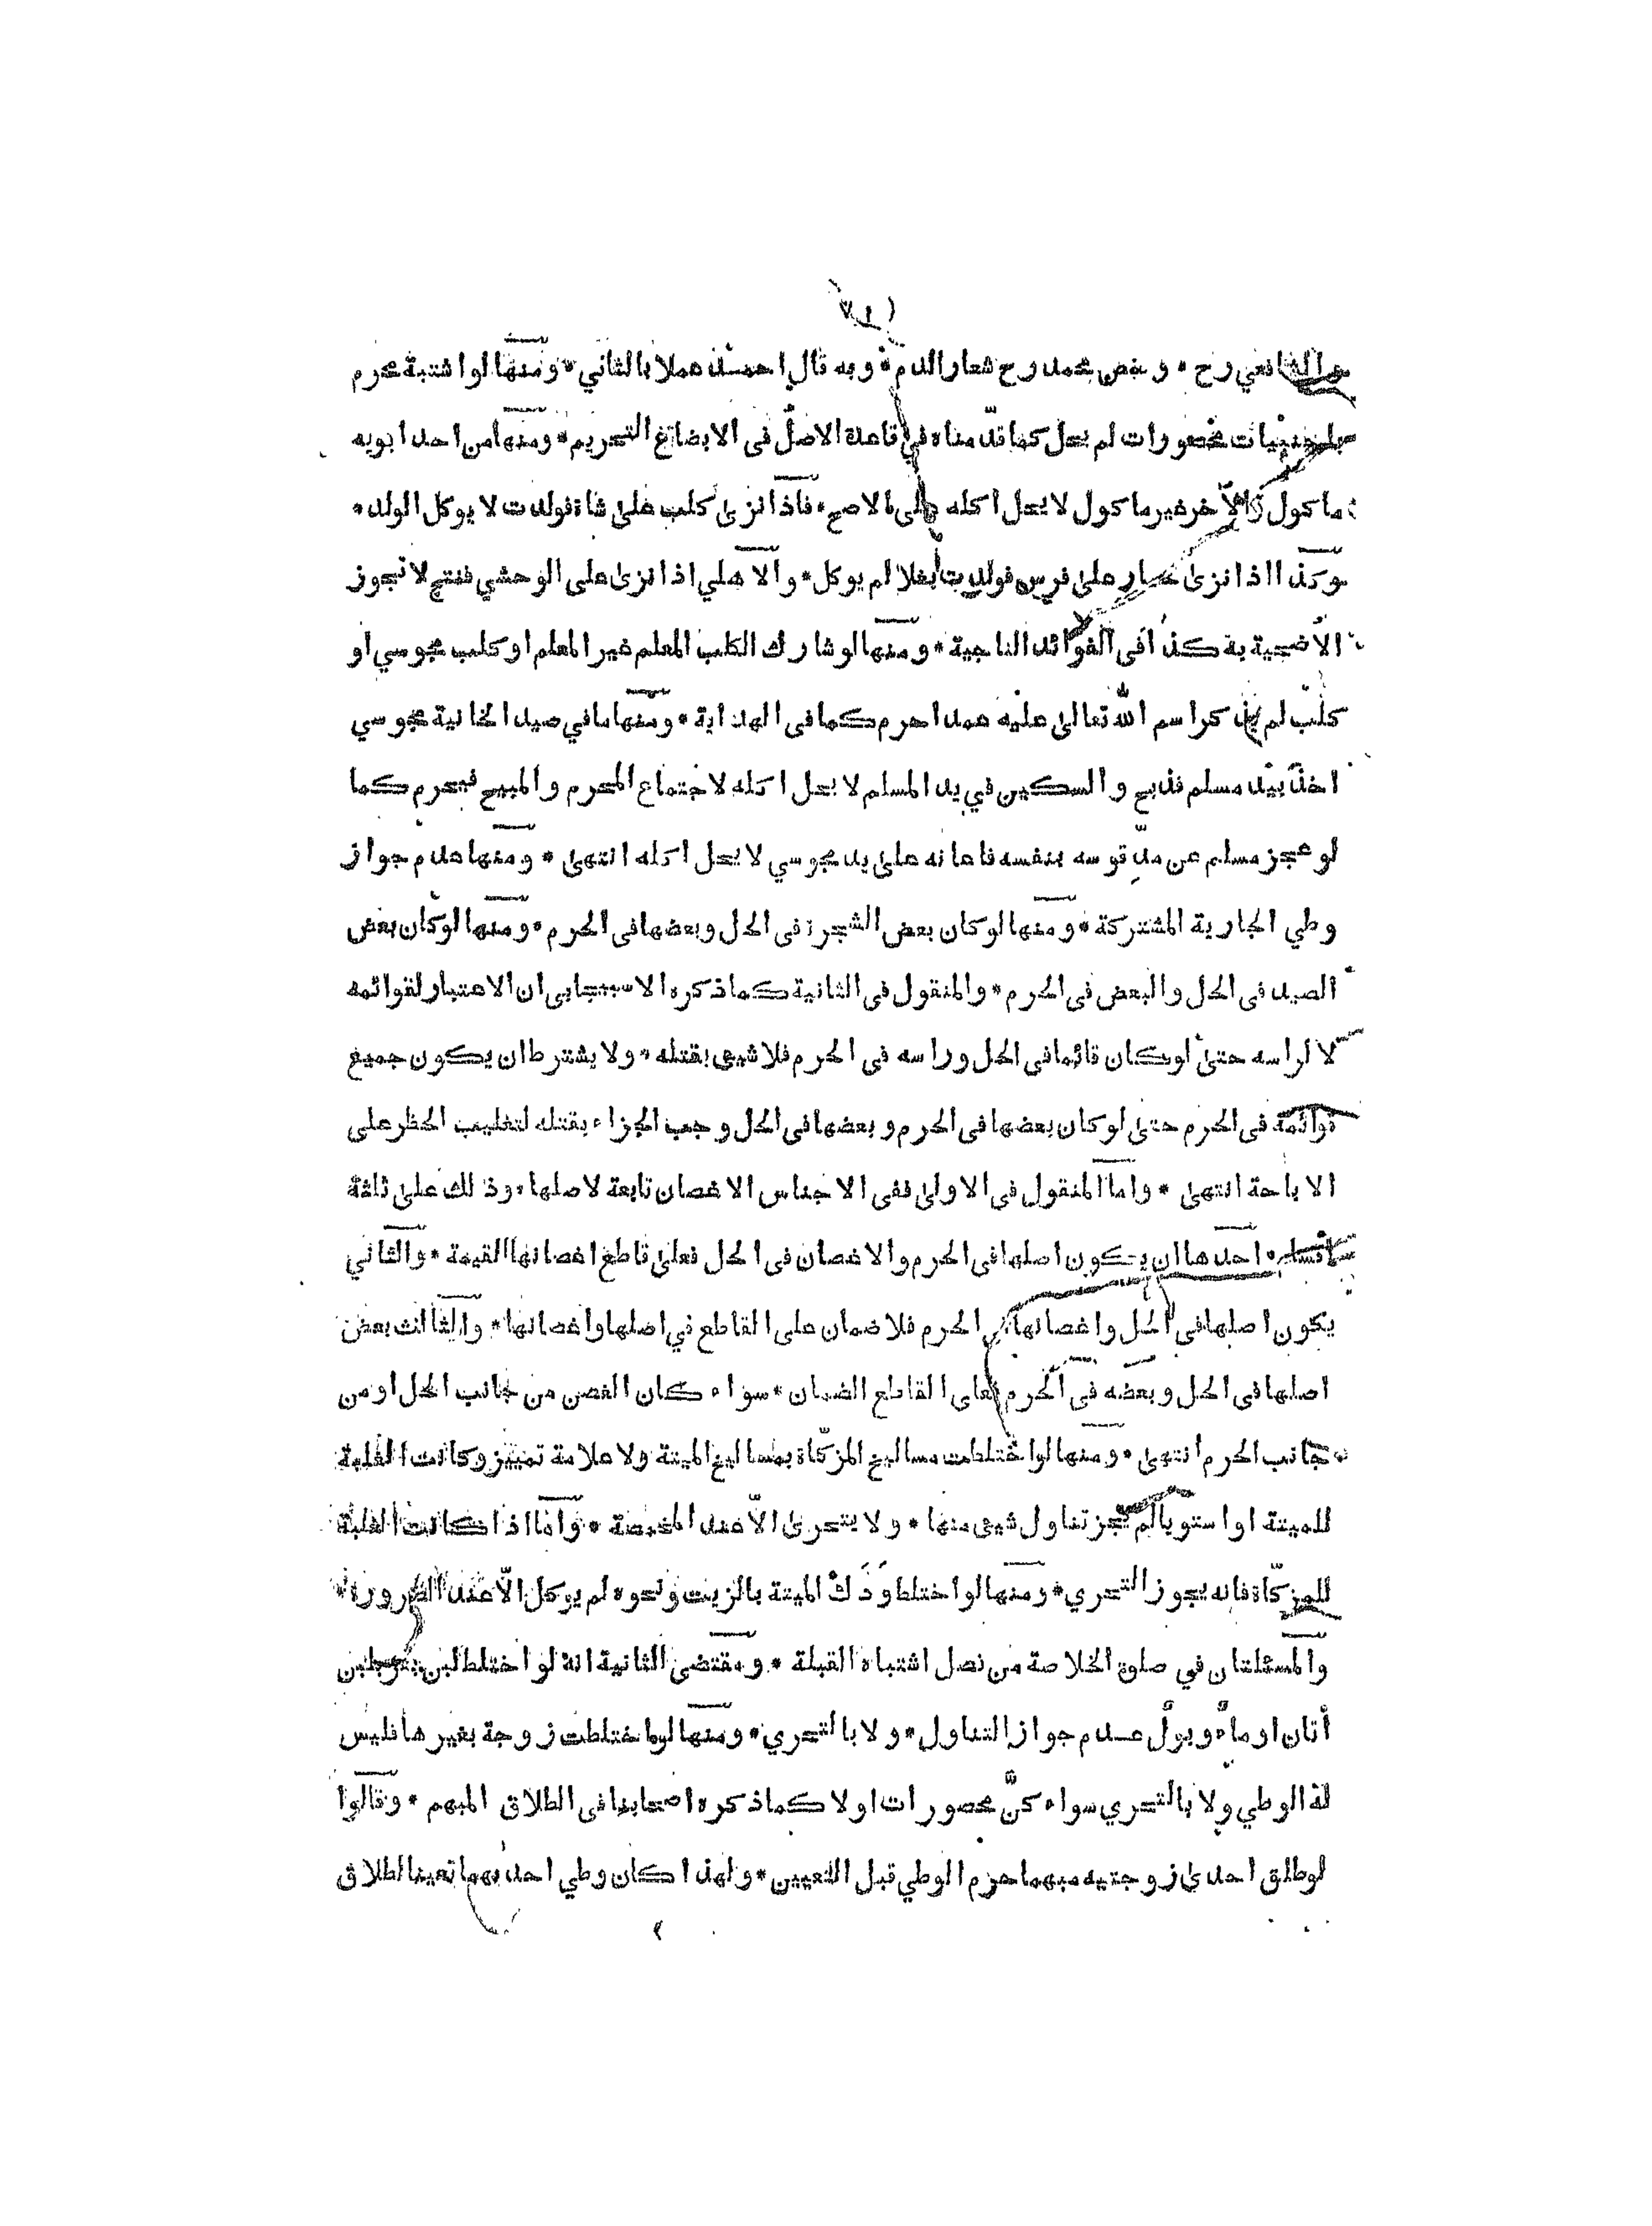 والشافعي رح * وخص محمد رح شعار الدم * وبه قال احمد عملا بالثاني * ومنها لو اشتبه محرم
باجنبيات محصورات لم يحل كما قدّمناه في قاعدة الاصل فى الابضاع التحريم * ومنها من احد ابويه
ماكول والآخر غير ماكول لا يحل اكله على الاصح * فاذا نزىٰ كلب علىٰ شاة فولدت لا يوكل الولد *
وكذا اذا نزىٰ حمار علىٰ فرس فولدت بغلا لم يوكل * والاهلي اذا نزىٰ على الوحشي فنتج لا تجوز
الاضحية به كذا فى الفوائد التاجية * ومنها لو شارك الكلب المعلم غير المعلم او كلب مجوسي او
كلب لم يذكر اسم اللّٰه تعالىٰ عليه عمدا حرم كما فى الهداية * ومنها ما في صيد الخانية مجوسي
اخذ بيد مسلم فذبح والسكين في يد المسلم لا يحل اكله لاجتماع المحرم والمبيح فيحرم كما
لو عجز مسلم عن مدّ قوسه بنفسه فاعانه علىٰ يد مجوسي لا يحل اكله انتهىٰ * ومنها عدم جواز
وطي الجارية المشتركة * ومنها لو كان بعض الشجرة فى الحل وبعضها فى الحرم * ومنها لو كان بعض
الصيد فى الحل والبعض فى الحرم * والمنقول فى الثانية كما ذكره الاسبيجابى ان الاعتبار لقوائمه
لا لراسه حتىٰ لو كان قائما فى الحل وراسه فى الحرم فلا شيى بقتله * ولا يشترط ان يكون جميع
قوائمه فى الحرم حتىٰ لو كان بعضها فى الحرم وبعضها فى الحل وجب الجزاء بقتله لتغليب الحظر على
الاباحة انتهىٰ * واما المنقول فى الاولىٰ ففى الاجناس الاغصان تابعة لاصلها * وذلك علىٰ ثلثة
اقسام * احدها ان يكون اصلها فى الحرم والاغصان فى الحل فعلىٰ قاطع اغصانها القيمة * والثاني
يكون اصلها فى الحل واغصانها فى الحرم فلا ضمان على القاطع في اصلها واغصانها * والثالث بعض
اصلها فى الحل وبعضه فى الحرم فعلى القاطع الضمان * سواء كان الغصن من جانب الحل او من
جانب الحرم انتهىٰ * ومنها لو اختلطت مساليخ المزكّاة بمساليخ الميتة ولا علامة تميّز وكانت الغلبة
للميتة او استويا لم يجز تناول شيى منها * ولا يتحرىٰ الّا عند المخمصة * وامّا اذا كانت الغلبة
للمزكّاة فانه يجوز التحري * ومنها لو اختلط وَدَكُ الميتة بالزيت ونحوه لم يوكل الّا عند الضرورة *
والمسئلتان في صلوة الخلاصة من فصل اشتباه القبلة * ومقتضى الثانية انه لو اختلط لبن بقر بلبن
أتان او ماءٌ وبولٌ عدم جواز التناول * ولا بالتحري * ومنها لو اختلطت زوجة بغيرها فليس
له الوطي ولا بالتحري سواء كنّ محصورات او لا كما ذكره اصحابنا فى الطلاق المبهم * وقالوا
لو طلق احدىٰ زوجتيه مبهما حرم الوطي قبل التعيين * ولهذا كان وطي احدٰيهما تعيينا لطلاق